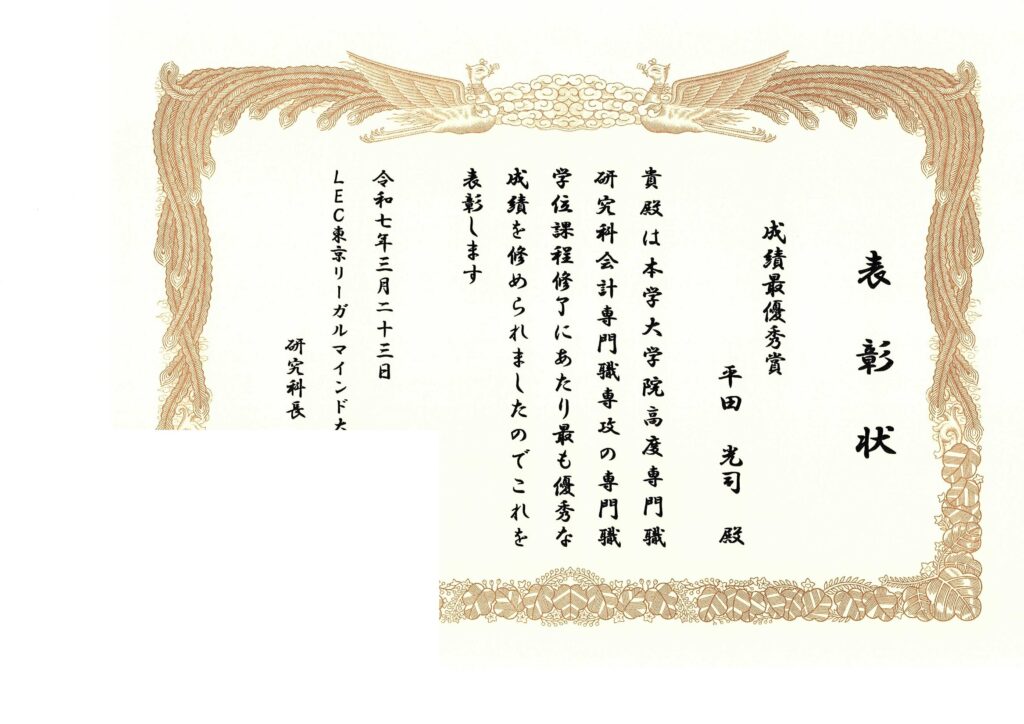 表彰状
成績最優秀賞
平田 光司 殿
貴殿は本学大学院高度専門職
研究科会計専門職専攻の専門職
学位課程修了にあたり最も優秀な
成績を修められましたのでこれを
表彰します
令和七年三月二十三日
LEC東京リーガルマインド大
研究科長